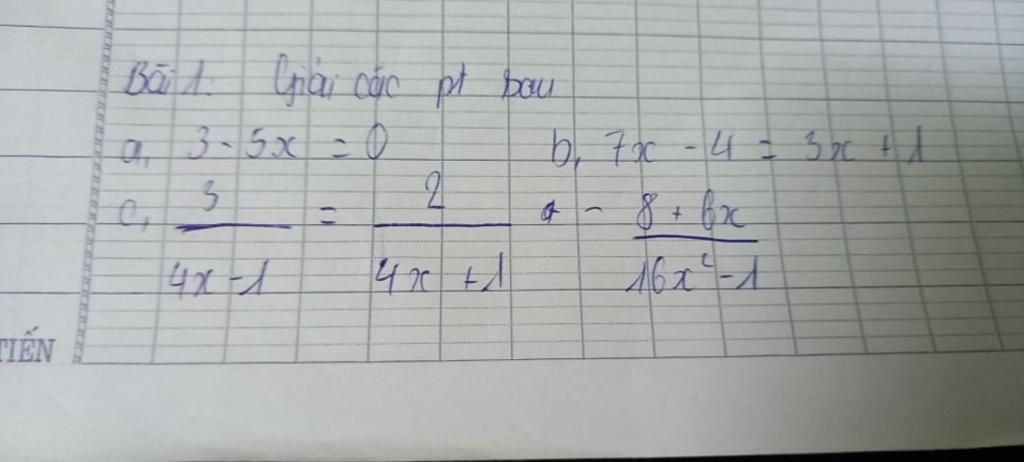 Bài 1: Giải các pt sau
a, 3 - 5x = 0 b, 7x - 4 = 3x + 1
c, 3/(4x - 1) = 2/(4x + 1) - (8 + 6x)/(16x² - 1)
TIẾN